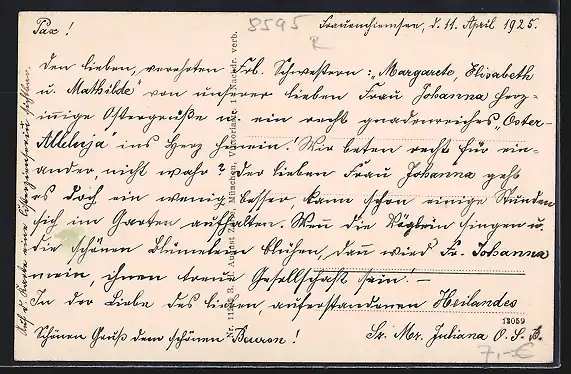 Pax !
8595
R
Frauenchiemsee, d. 11. April 1925.
Den lieben, verehrten Frl. Schwestern: „Margarete, Elisabeth
u. Mathilde“ von unserer lieben Frau Johanna herz-
innige Ostergrüße u. ein recht gnadenreiches „Oster-
Alleluja“ ins Herz hinein! Wir beten recht für ein-
ander nicht wahr? Der lieben Frau Johanna geht
es doch ein wenig besser, kann schon einige Stunden
sich im Garten aufhalten. Wenn die Vöglein singen u.
die schönen Blümelein blühen, dann wird Fr. Johanna
mein, ihnen treue Gesellschaft sein! –
In der Liebe des lieben, auferstandenen Heilandes
Schönen Gruß dem schönen Beuron!
Sr. Mr. Juliana O. S. B.
12059
7,-€
August Zerle, München, Viktoriastr. 1 Nachdr. verb.